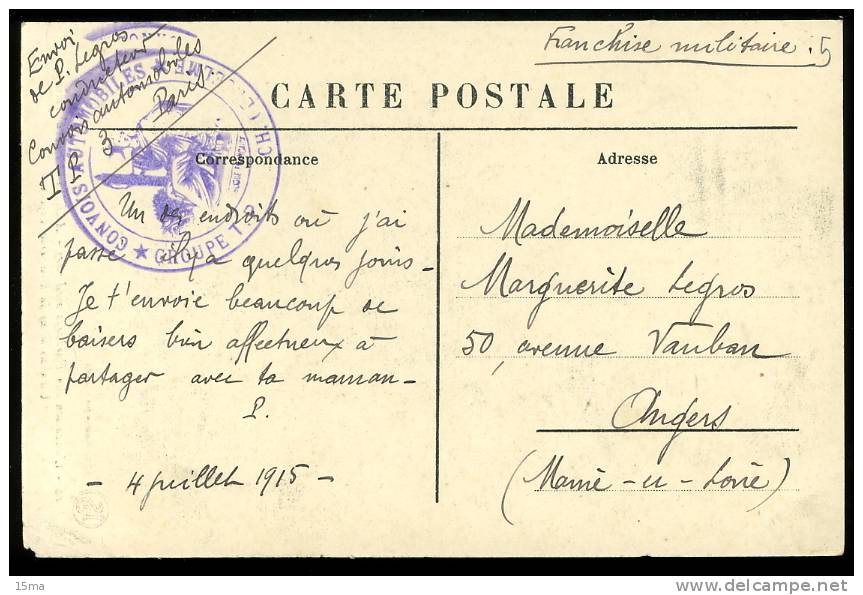 Envoi
de P. Legros
conducteur
Convois automobiles
T P 3 Paris
Franchise militaire.
CARTE POSTALE
Correspondance
Un des endroits où j'ai
passé il y a quelques jours -
Je t'envoie beaucoup de
baisers bien affectueux à
partager avec ta maman -
P.
- 4 juillet 1915 -
Adresse
Mademoiselle
Marguerite Legros
50, avenue Vauban
Angers
(Maine-u-Loire)
CONVOIS AUTOMOBILES
★ GROUPE T.P.
15ma
www.delcampe.net